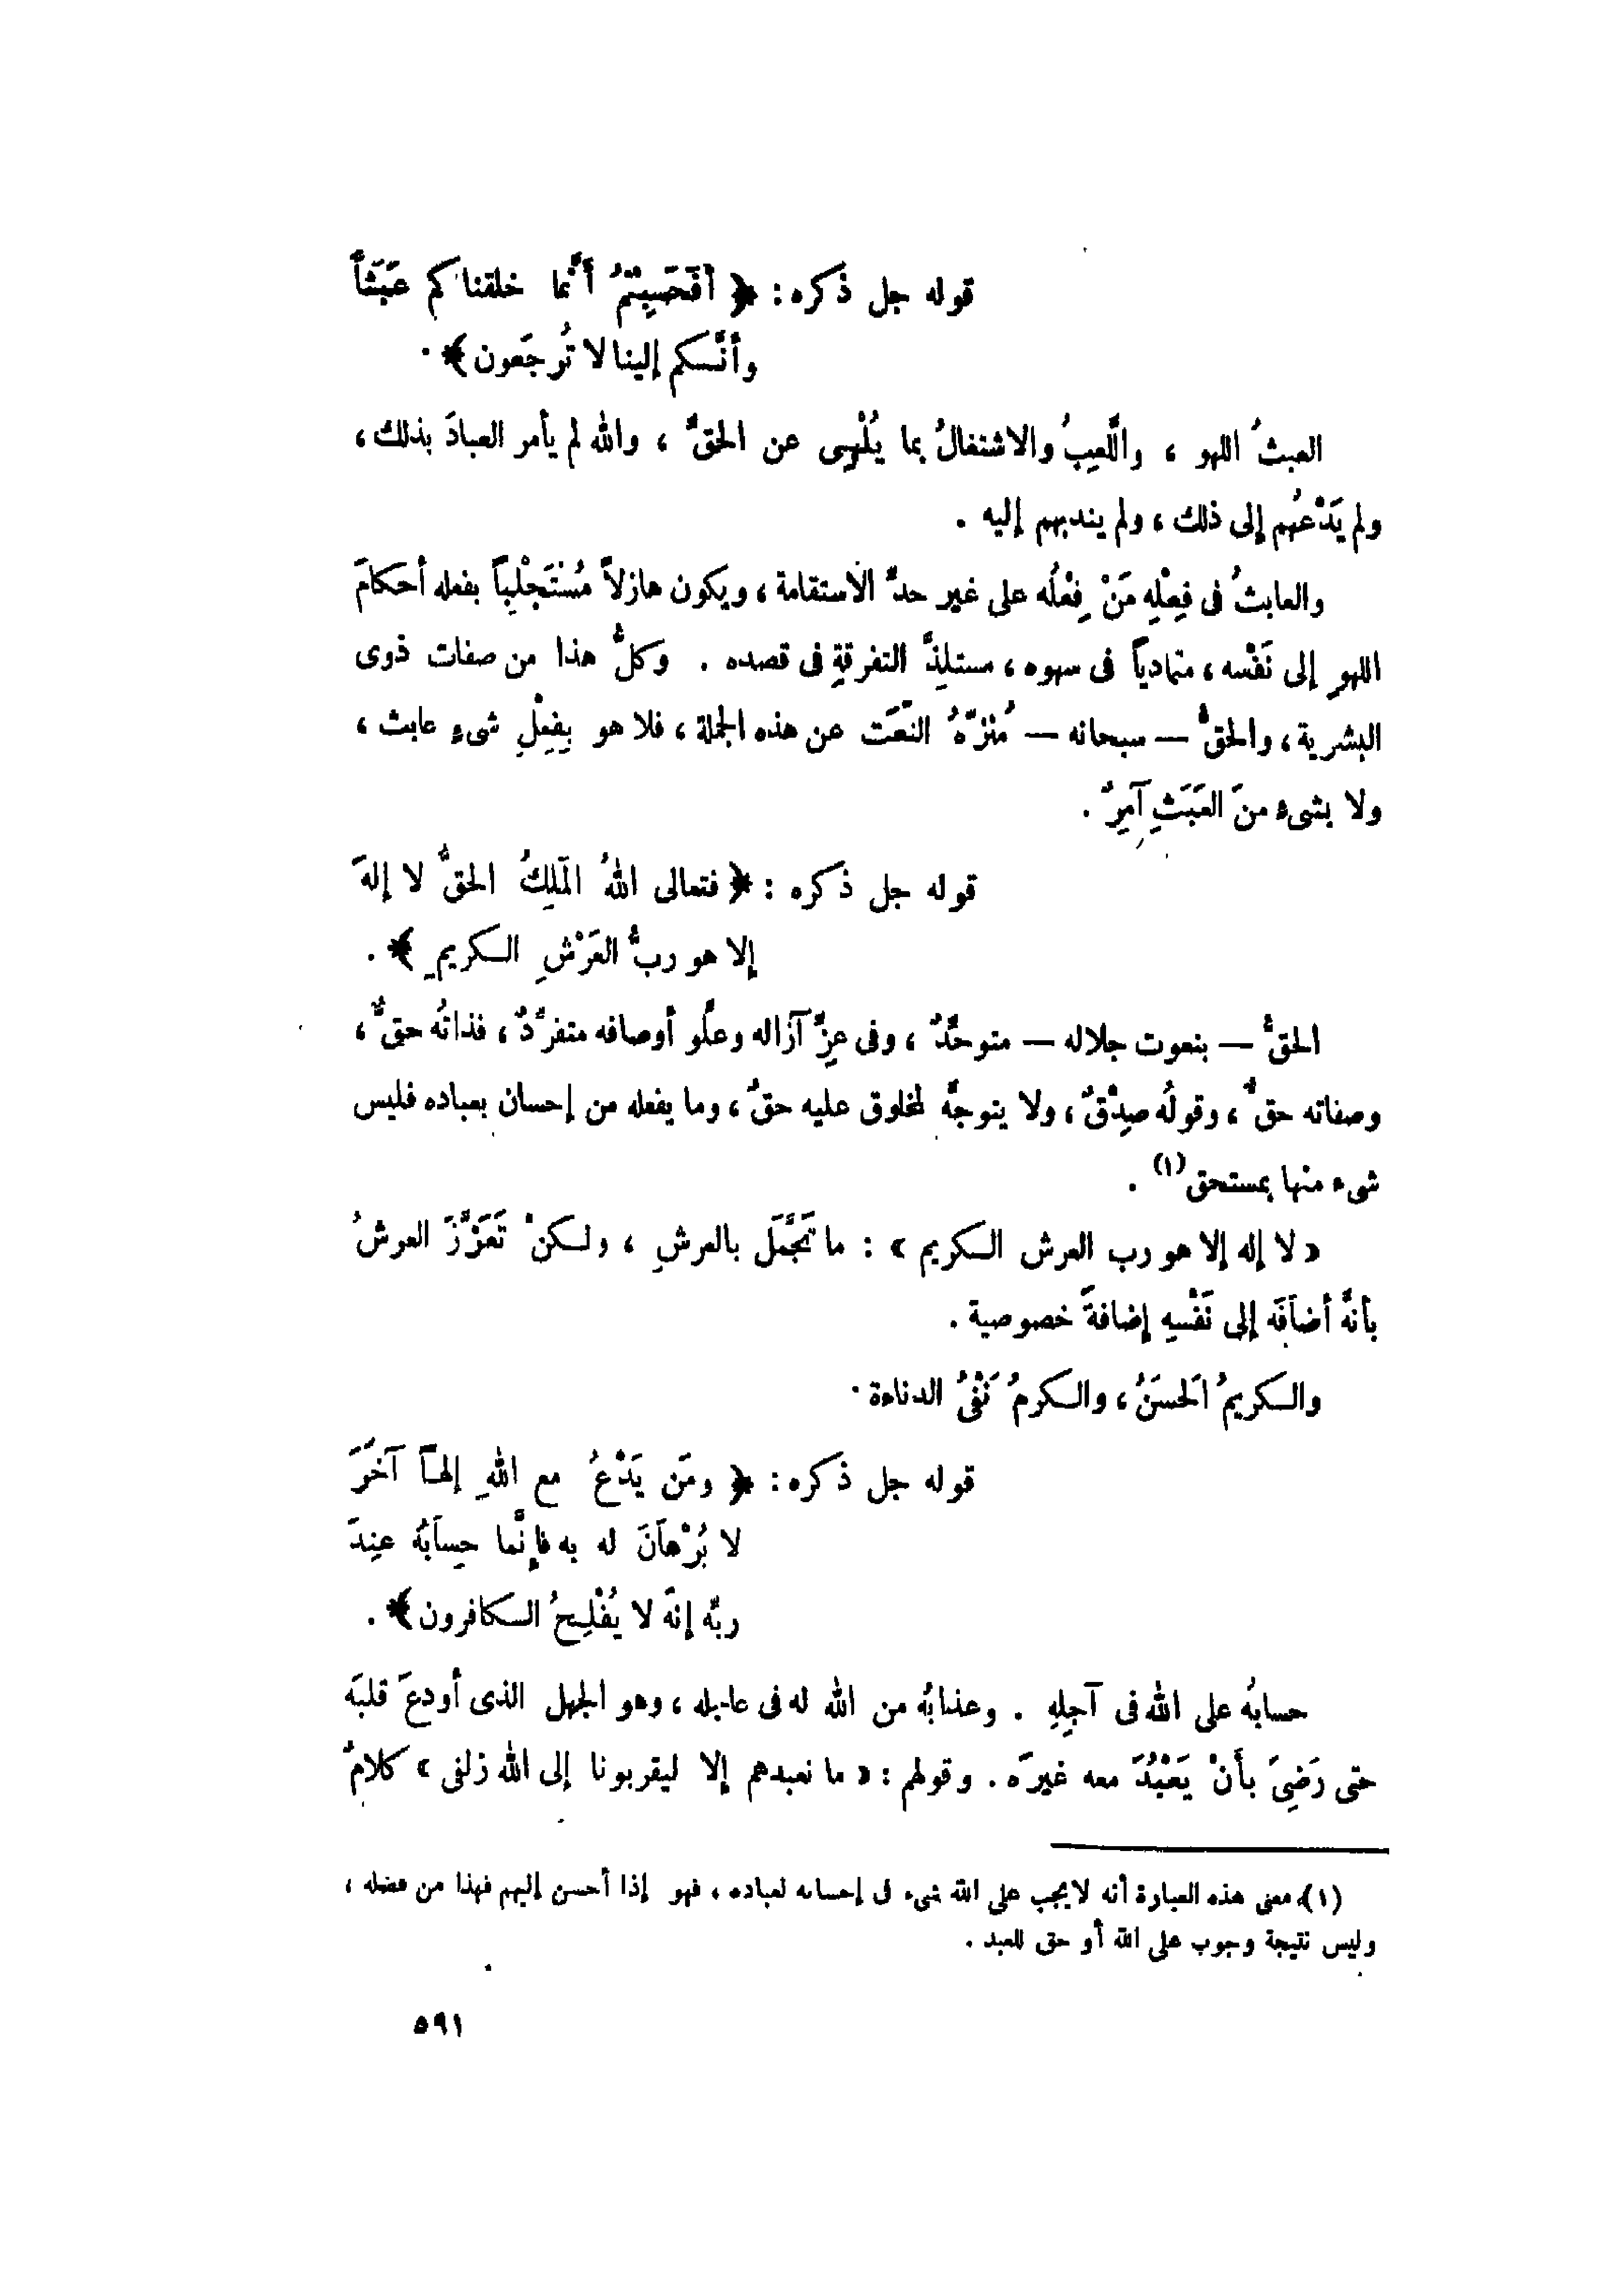 قوله جل ذكره: ﴿ أَفَحَسِبْتُمْ أَنَّما خلقناكم عَبَثَاً
وأنَّكم إلينا لا تُرجَعون ﴾ .
العبثُ اللهو ، واللَّعِبُ والاشتغالُ بما يُلْهِى عن الحقِّ ، والله لم يأمر العبادَ بذلك ،
ولم يَدْعُهم إلى ذلك ، ولم يندبهم إليه .
والعابثُ فى فِعْلِهِ مَنْ فِعْلُه على غير حدِّ الاستقامة ، ويكون هازلاً مُسْتَجْلِباً بفعله أحكامَ
اللهوِ إلى نَفْسه ، متمادياً فى سهوه ، مستلِذَّ التفرقةِ فى قصده . وكلُّ هذا من صفات ذوى
البشرية ، والحقُّ — سبحانه — مُنَزَّهُ النَّعْت عن هذه الجملة ، فلا هو بِفِعْلِ شىءٍ عابث ،
ولا بشىءٍ منَ العَبَثِ آمِرٌ .
قوله جل ذكره : ﴿ فتعالى اللهُ المَلِكُ الحقُّ لا إلهَ
إلا هو ربُّ العَرْشِ الكريمِ ﴾ .
الحقُّ — بنعوت جلاله — متوحِّدٌ ، وفى عِزِّ آزاله وعلُّو أوصافه متفرِّدٌ ، فذاتُه حقٌّ ،
وصفاته حقٌّ ، وقولُه صِدْقٌ ، ولا يتوجَّه لمخلوق عليه حقٌ ، وما يفعله من إحسان بعباده فليس
شىء منها بمستحق(١) .
« لا إله إلا هو رب العرش الكريم » : ما تَجَمَّلَ بالعرشِ ، ولكنْ تَعَزَّزَ العرشُ
بأنَّه أضافَه إلى نَفْسِهِ إضافةَ خصوصية .
والكريمُ الحَسَنُ ، والكرمُ نَفْىُ الدناءة .
قوله جل ذكره: ﴿ ومَن يَدْعُ مع اللهِ إلهاً آخَرَ
لا بُرْهَانَ له به فإنَّما حِسابُه عِندَ
ربِّه إنَّه لا يُفْلِحُ الكافرون ﴾ .
حسابُه على الله فى آجِلِهِ . وعذابُه من الله له فى عاجله ، وهو الجهل الذى أودعَ قلبَه
حتى رَضِىَ بأَنْ يَعْبُدَ معه غيرَه . وقولهم : « ما نعبدهم إلا ليقربونا إلى الله زلفى » كلامٌ
(١) معنى هذه العبارة أنه لا يجب على الله شىء فى إحسانه لعباده ، فهو إذا أحسن إليهم فهذا من فضله ،
وليس نتيجة وجوب على الله أو حق للعبد .
٥٩١